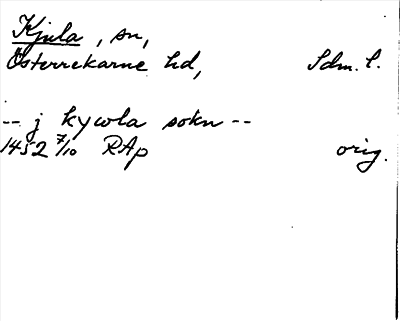 Kjula, sn,
Österrekarne hd, Sdm. l.
-- j kywla sokn --
1452 7/10 RAp orig.